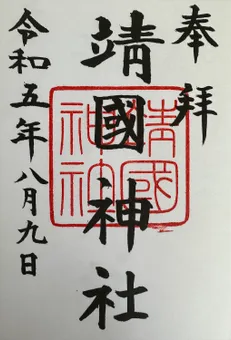 奉拝
靖國神社
令和五年八月九日
靖國神社